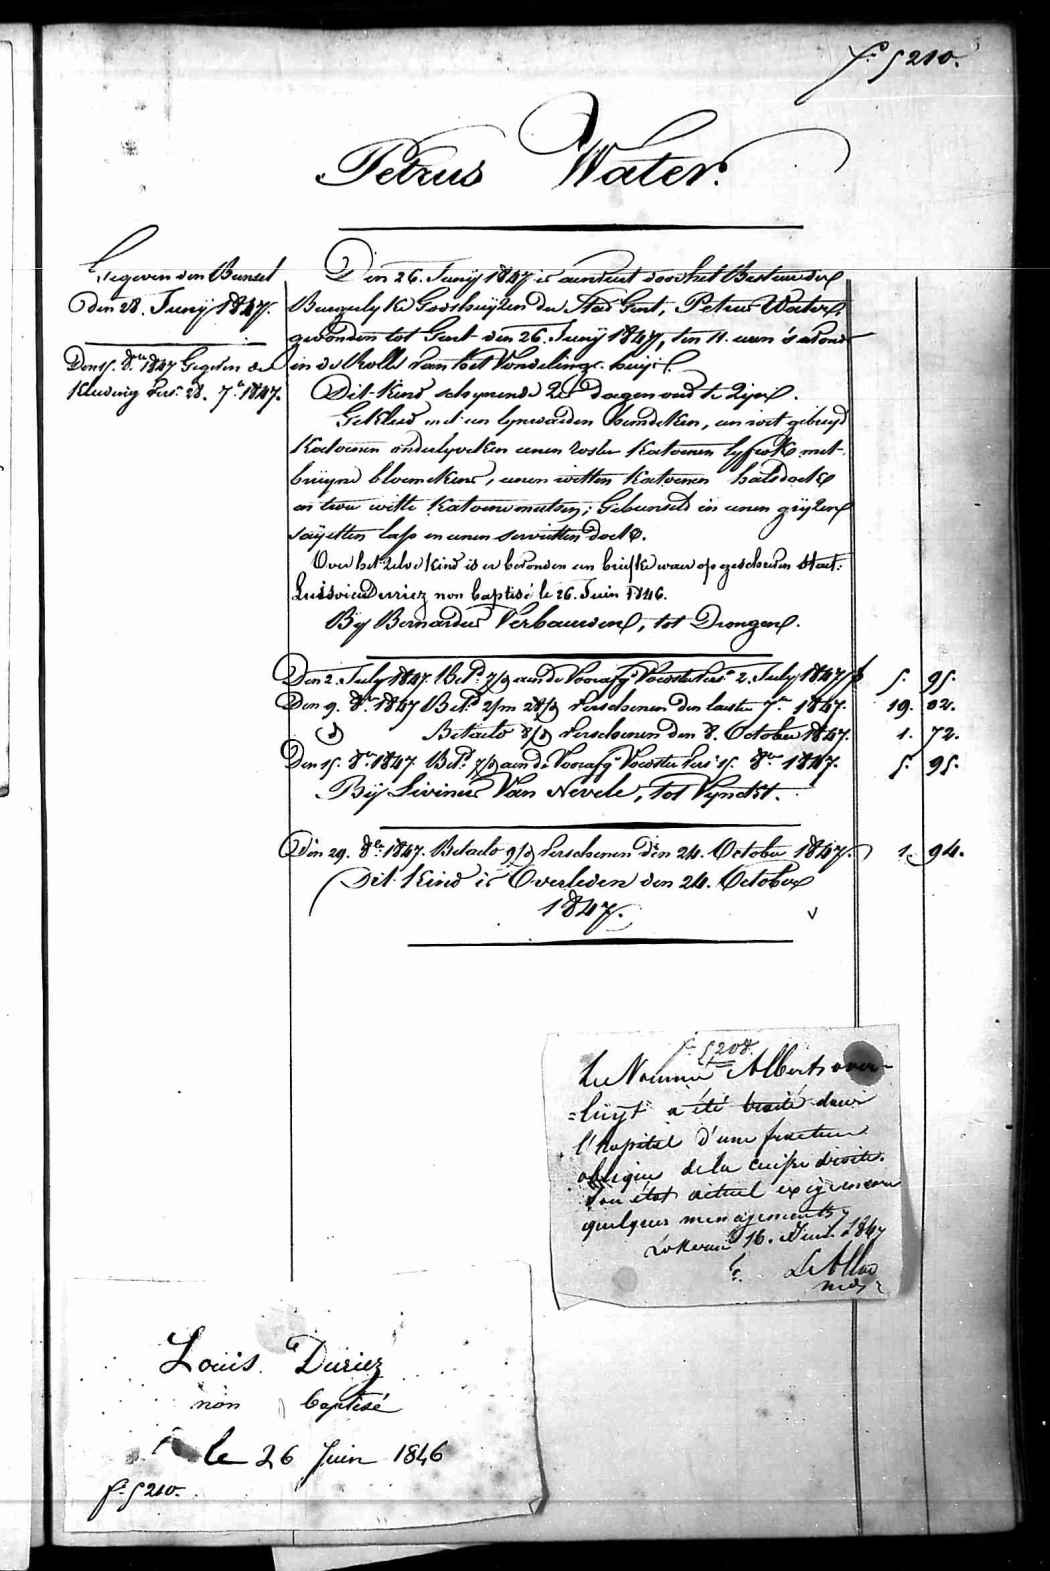 f.° 5210.
Petrus Water.
Gegeven den Bunsel
den 28. Junij 1847.
Den 15. 8.bre 1847 Gegeven de
Kleeding vers. 28. 7.e 1847.
Den 26. Junij 1847 is aenveert door het Bestuur der
Burgerlyke Godshuijzen der Stad Gent, Petrus Water,
gevonden tot Gent den 26. Junij 1847, ten 11. uren 's avonds
in de Rolle van het Vondelings-huijs.
Dit kind schynende 2 daegen oud te zijn.
Gekleed met een lynwaeden hemdeken, een wit gebreyd
katoenen onderlyveken eenen rooden katoenen lyfrok met
bruijne bloemekens, eenen witten katoenen halsdoek
en twee witte katoene mutsen; Gebunseld in eenen grijzen
saijetten lap en eenen servietten doek.
Over het zelve kind is er bevonden een briefke waer op geschreven staet:
Louis Duriez non baptisé le 26. Juin 1846.
Bij Bernardus Verbauwen, tot Drongen.
Den 2. July 1847. Bet.d aen de Voorafg. Voedster vers. 2. July 1847 5. 95.
Den 9. 8.bre 1847 Bet.d 2/m 28/d verschenen den laesten 7.bre 1847. 19. 02.
d.o Betaeld 8/d verschenen den 8. October 1847. 1. 72.
Den 15. 8.bre 1847. Bet.d aen de Voorafg. Voedster vers. 15. 8.bre 1847. 5. 95.
Bij Livinus Van Nevele, tot Vynckt.
Den 29. 8.bre 1847. Betaeld 9/d verschenen den 24. October 1847. 1. 94.
Dit kind is Overleden den 24. October
1847.
f.° 5208.
Le Nommé Albert
a été traité dans
l'hopital d'une fracture
oblique de la cuisse droite.
Son état actuel exige encore
quelques menagements
Lokeren 16. 1847
Louis Duriez
non baptisé
le 26 Juin 1846
f.° 5210.